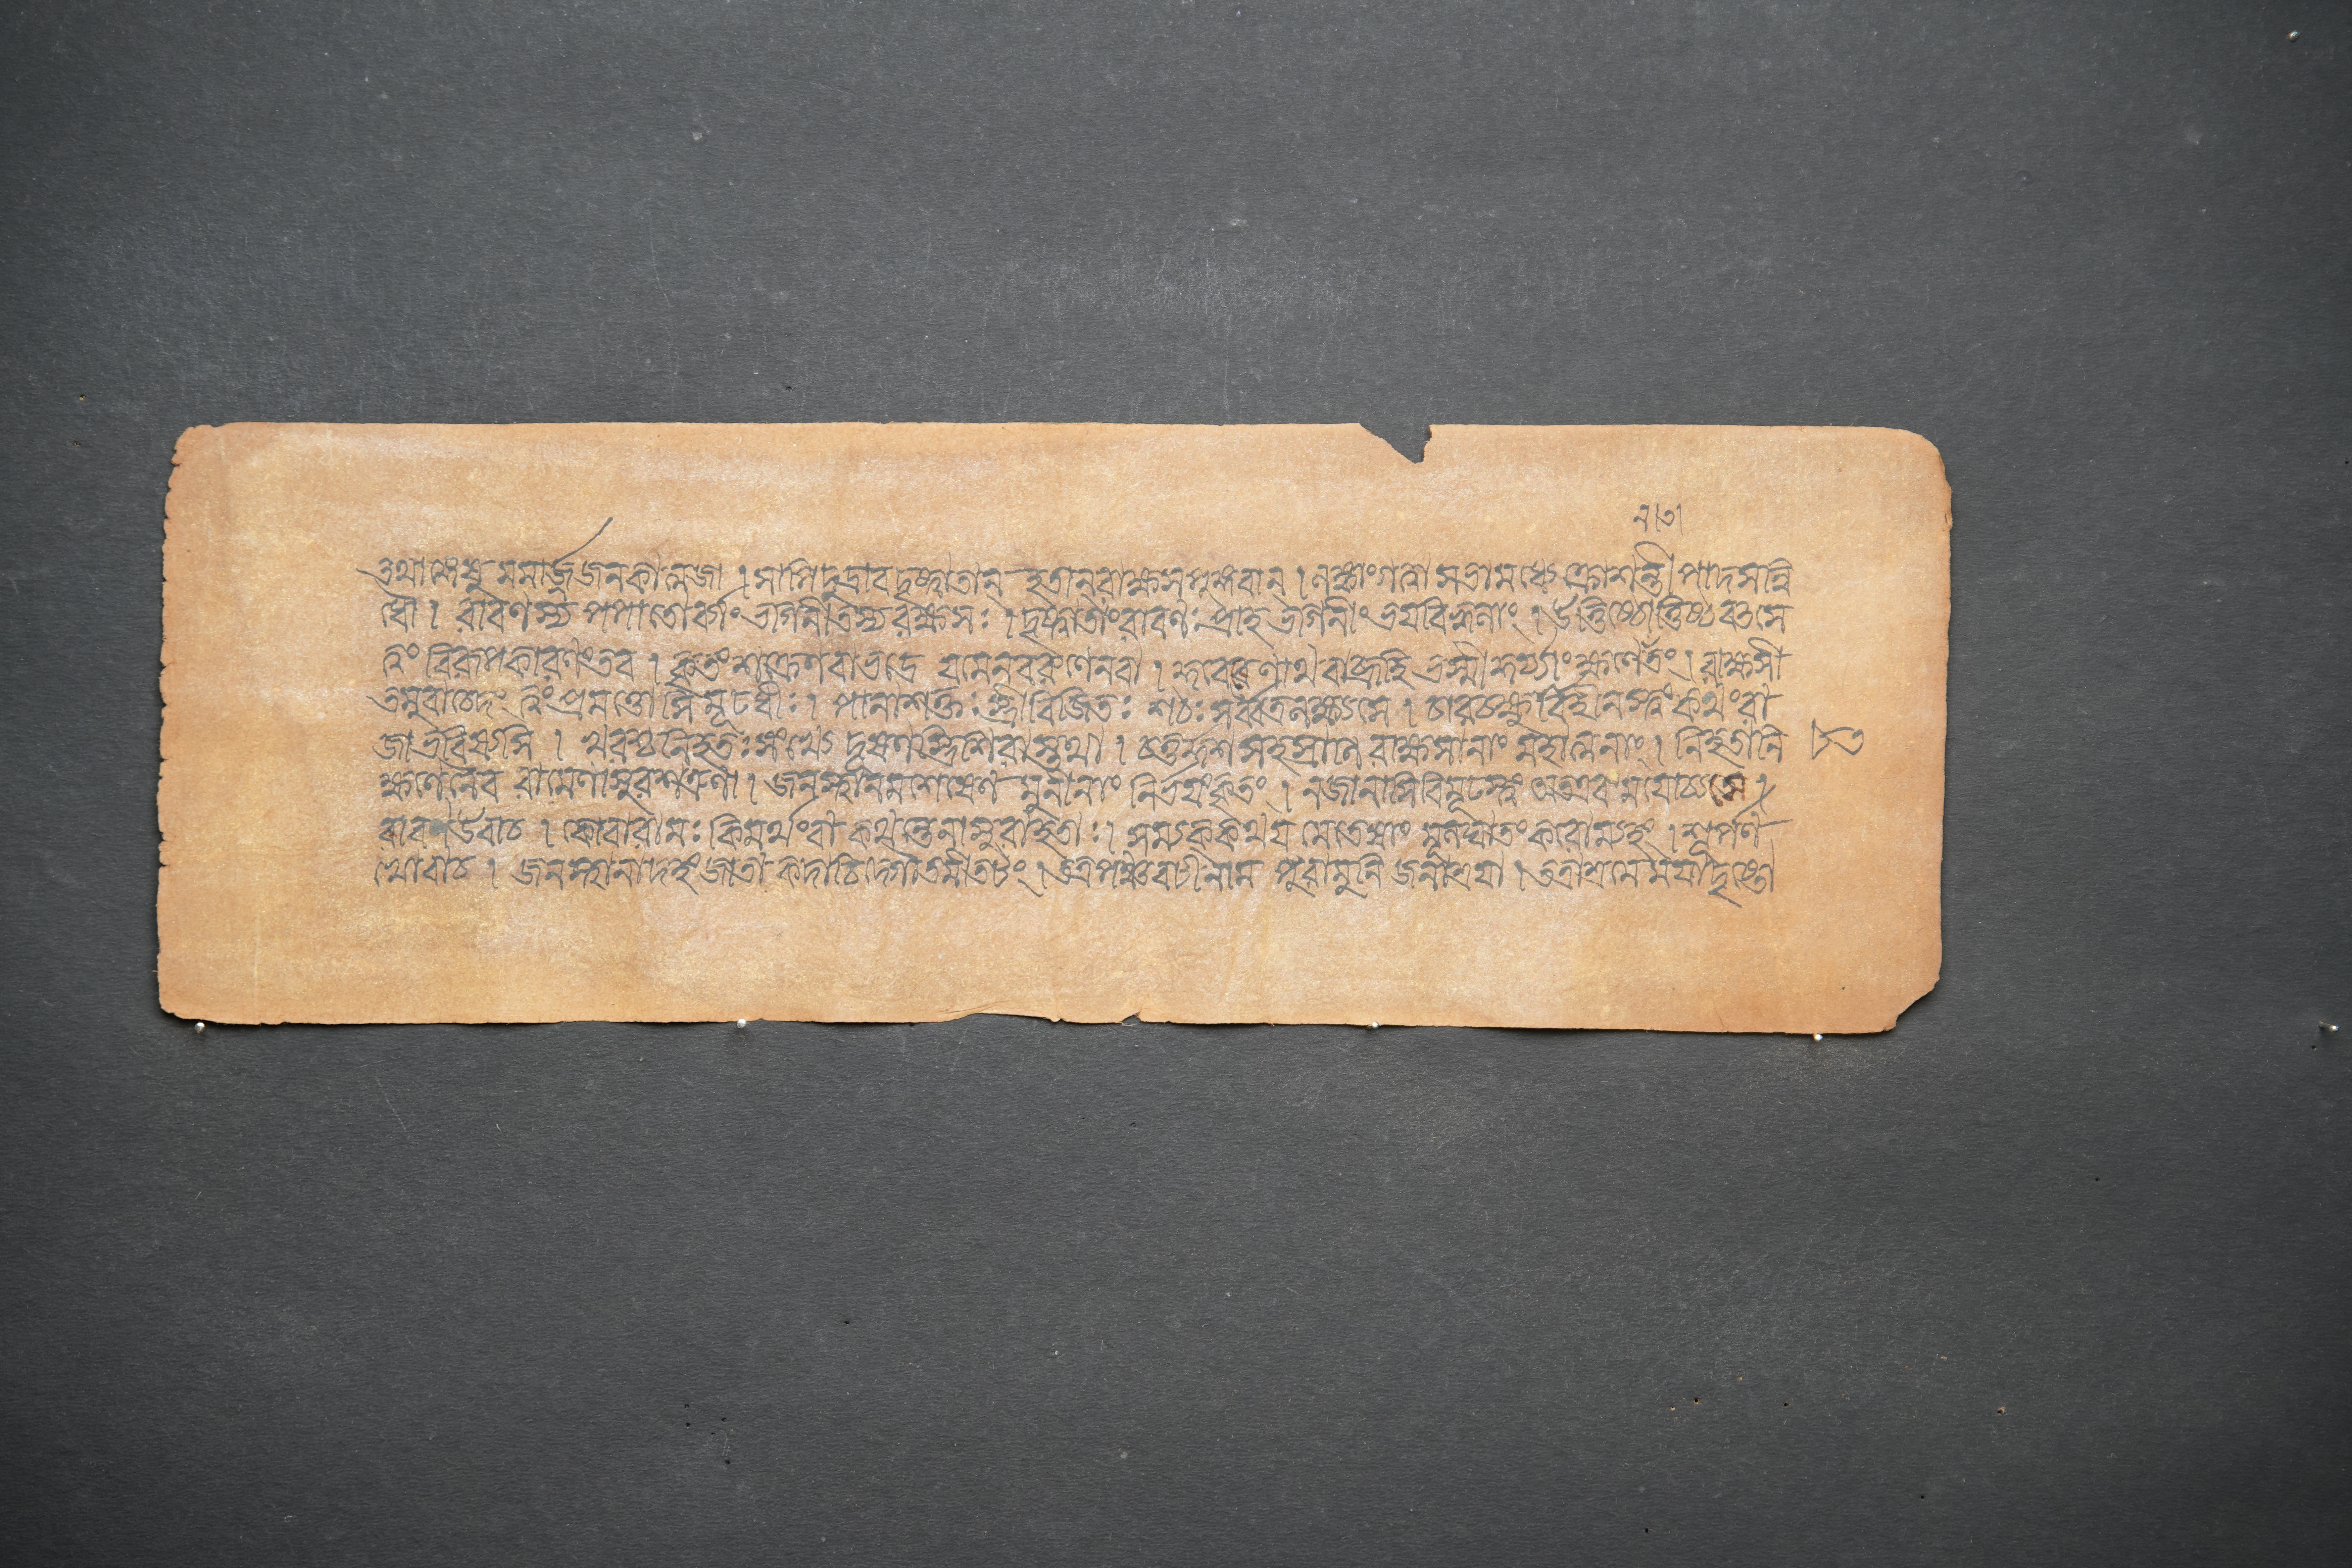 ন।তা
তথাঙ্গেষু মমার্জ্জজনকাত্মজা । সাপি দুদ্রাব দৃষ্ট্বাতান্ হতান্ রাক্ষসপুঙ্গবান্ । লঙ্কাংগত্বা সভামধ্যে ক্রোশন্তী পাদসন্নি
ধৌ । রাবণস্য পপাতোর্ব্যাং ভগিনীতস্যরক্ষসঃ । দৃষ্ট্বাতাং রাবণঃ প্রাহ ভগিনীং ভয়বিহ্বলাং । উত্তিষ্ঠোত্তিষ্ঠবৎসে
ত্বং বিরূপকারণং তব । কৃতং শক্রেণবাভদ্রে যমেনবরুণেনবা । কুবেরেণাথবাব্রূহি ভস্মীকুর্য্যাং ক্ষণেতং । রাক্ষসী
তমুবাচেদং ত্বং প্রমত্তোসি মূঢধীঃ । পানাশক্তঃ স্ত্রীবিজিতঃ শঠঃ সর্ব্বত্রলক্ষ্যসে । চারচক্ষুর্বিহীনস্ত্বং কথং রা
জাভবিষ্যসি । খরশ্চনিহতঃ সংখ্যে দূষণস্ত্রিশিরাস্তথা । চতুর্দ্দশসহস্রাণি রাক্ষসানাং মহাত্মনাং । নিহতানি
ক্ষণেনৈব রামেণাসুরশত্রুণা । জনস্থানমশেষেণ মুনীনাং নির্ভয়ং কৃতং । নজানাসিবিমূঢস্ত্বং অতএব ময়োচ্যসে ।
রাবণ উবাচ । কোবারামঃ কিমর্থংবা কথন্তেনাসুরাহতাঃ । সম্যক্ কথয় মেতেষাং মূলঘাতং করোম্যহং । শূর্পণ
খোবাচ । জনস্থানাদহং জাতা কদাচিদ্গৌতমীতটং । তত্রপঞ্চবটীনাম পুরামুনি জনাশ্রয়া । তত্রাশ্রমে ময়াদৃষ্টো